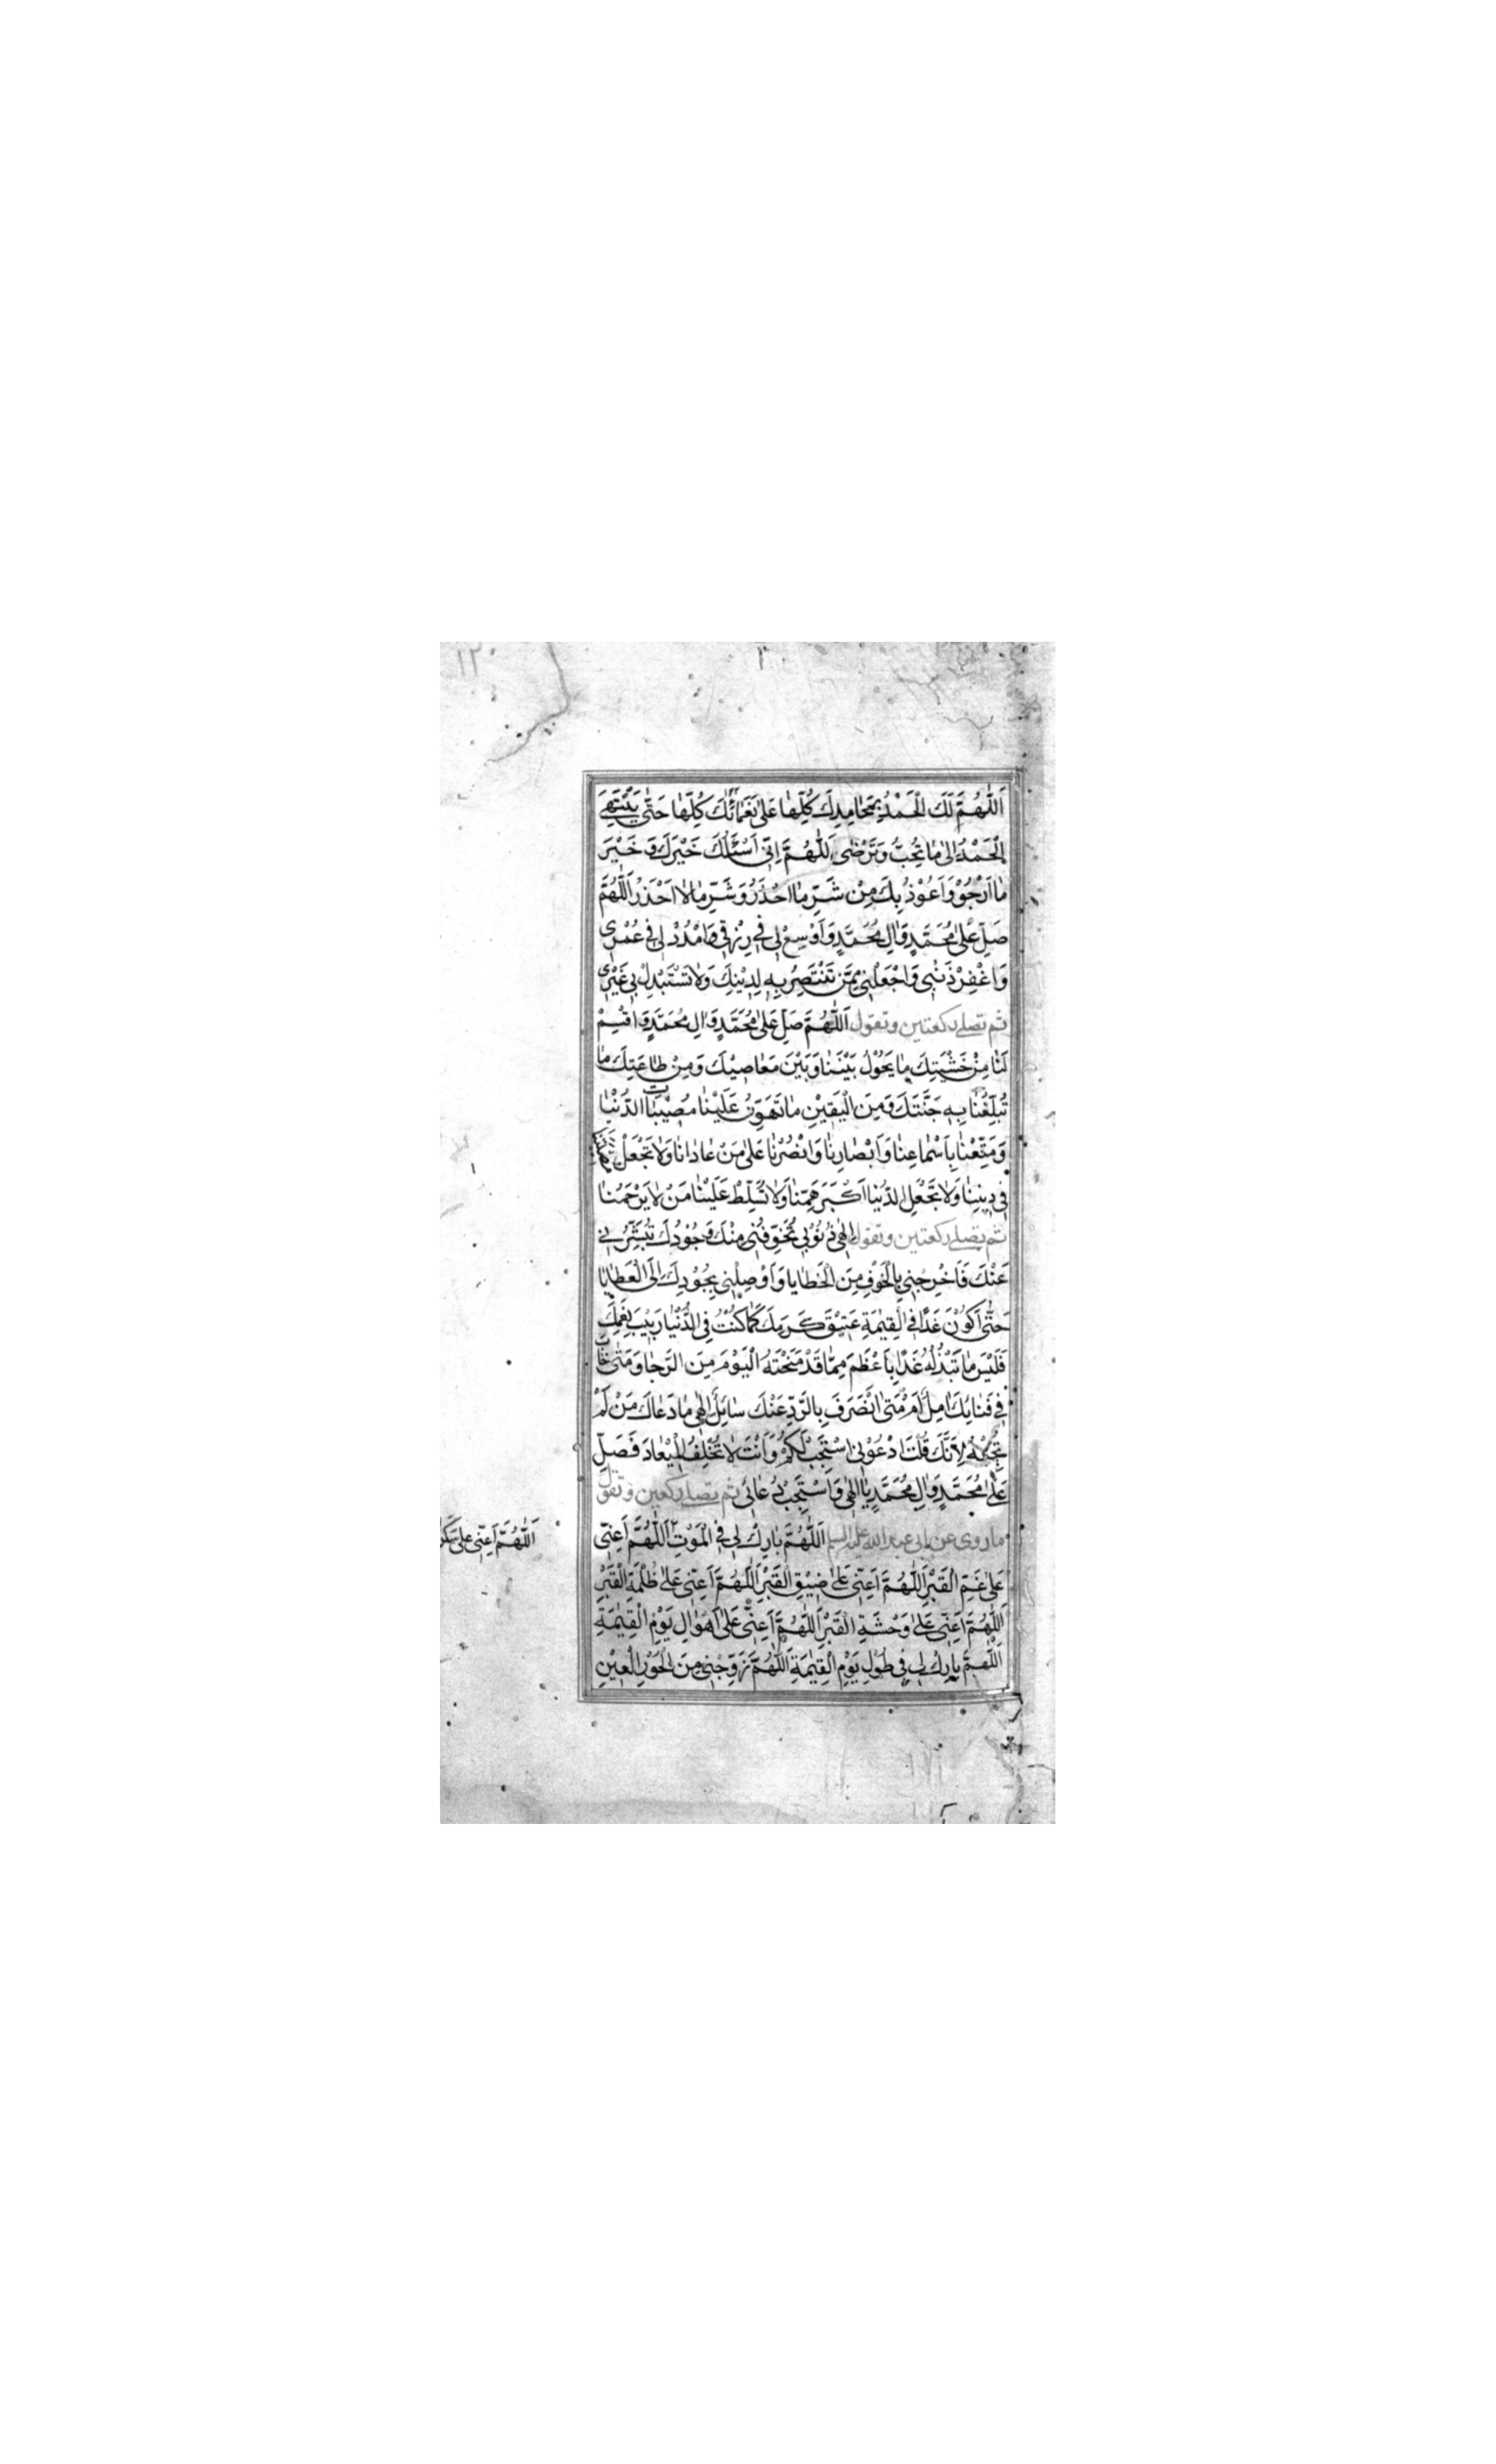 ١٢
اَللّٰهُمَّ لَكَ الْحَمْدُ بِمَحٰامِدِكَ كُلِّهٰا عَلىٰ نَعْمٰائِكَ كُلِّهٰا حَتّٰى يَنْتَهِىَ
الْحَمْدُ اِلىٰ مٰا تُحِبُّ وَتَرْضٰى اَللّٰهُمَّ اِنّى اَسْئَلُكَ خَيْرَكَ وَ خَيْرَ
مٰا اَرْجُوْ وَ اَعُوْذُ بِكَ مِنْ شَرِّ مٰا اَحْذَرُ وَ شَرِّ مٰا لاٰ اَحْذَرُ اَللّٰهُمَّ
صَلِّ عَلىٰ مُحَمَّدٍ وَاٰلِ مُحَمَّدٍ وَ اَوْسِعْ لى فى رِزْقى وَامْدُدْ لى فى عُمْرى
وَاغْفِرْ ذَنْبى وَاجْعَلْنى مِمَّنْ تَنْتَصِرُ بِهِ لِدِيْنِكَ وَلاٰ تَسْتَبْدِلْ بى غَيْرى
ثم تصلى ركعتين وتقول اَللّٰهُمَّ صَلِّ عَلىٰ مُحَمَّدٍ وَاٰلِ مُحَمَّدٍ وَ اقْسِمْ
لَنٰا مِنْ خَشْيَتِكَ مٰا يَحُوْلُ بَيْنَنٰا وَ بَيْنَ مَعٰاصِيْكَ وَ مِنْ طٰاعَتِكَ مٰا
تُبَلِّغُنٰا بِهِ جَنَّتَكَ وَ مِنَ الْيَقِيْنِ مٰا تَهَوِّنُ عَلَيْنٰا مُصِيْبٰاتِ الدُّنْيٰا
وَ مَتِّعْنٰا بِاَسْمٰاعِنٰا وَ اَبْصٰارِنٰا وَانْصُرْنٰا عَلىٰ مَنْ عٰادٰانٰا وَلاٰ تَجْعَلْ
فى دِيْنِنٰا وَلاٰ تَجْعَلِ الدُّنْيٰا اَكْبَرَ هَمِّنٰا وَلاٰ تُسَلِّطْ عَلَيْنٰا مَنْ لاٰ يَرْحَمُنٰا
ثم تصلى ركعتين وتقول اِلٰهى ذُنُوْبى تُخَوِّفُنى مِنْكَ وَ جُوْدُكَ تُبَشِّرُنى
عَنْكَ فَاَخْرِجْنى بِالْخَوْفِ مِنَ الْخَطٰايٰا وَ اَوْصِلْنى بِجُوْدِكَ اِلَى الْعَطٰايٰا
حَتّٰى اَكُوْنَ غَدًا فِى الْقِيٰمَةِ عَتِيْقَ كَرَمِكَ كَمٰا كُنْتُ فِى الدُّنْيٰا رَبِيْبَ نِعَمِكَ
فَلَيْسَ مٰا تَبْذُلُهُ غَدًا بِاَعْظَمَ مِمّٰا قَدْ مَنَحْتَهُ الْيَوْمَ مِنَ الرَّجٰا وَ مَتٰى خٰابَ
فى فَنٰائِكَ اٰمِلٌ اَمْ مَتٰى انْصَرَفَ بِالرَّدِّ عَنْكَ سٰائِلٌ اِلٰهى مٰا دَعٰاكَ مَنْ لَمْ
تُجِبْهُ لِاَنَّكَ قُلْتَ ادْعُوْنى اَسْتَجِبْ لَكُمْ وَ اَنْتَ لاٰ تُخْلِفُ الْمِيْعٰادَ فَصَلِّ
عَلىٰ مُحَمَّدٍ وَاٰلِ مُحَمَّدٍ يٰا اِلٰهى وَ اسْتَجِبْ دُعٰائى ثم تصلى ركعتين وتقول
ما روى عن ابى عبد الله عليه السلم اَللّٰهُمَّ بٰارِكْ لى فى الْمَوْتِ اَللّٰهُمَّ اَعِنّى
اَللّٰهُمَّ اَعِنّى عَلىٰ
عَلىٰ غَمِّ الْقَبْرِ اَللّٰهُمَّ اَعِنّى عَلىٰ ضِيْقِ الْقَبْرِ اَللّٰهُمَّ اَعِنّى عَلىٰ ظُلْمَةِ الْقَبْرِ
اَللّٰهُمَّ اَعِنّى عَلىٰ وَحْشَةِ الْقَبْرِ اَللّٰهُمَّ اَعِنّى عَلىٰ اَهْوٰالِ يَوْمِ الْقِيٰمَةِ
اَللّٰهُمَّ بٰارِكْ لى فى طُوْلِ يَوْمِ الْقِيٰمَةِ اَللّٰهُمَّ زَوِّجْنى مِنَ الْحُوْرِ الْعِيْنِ